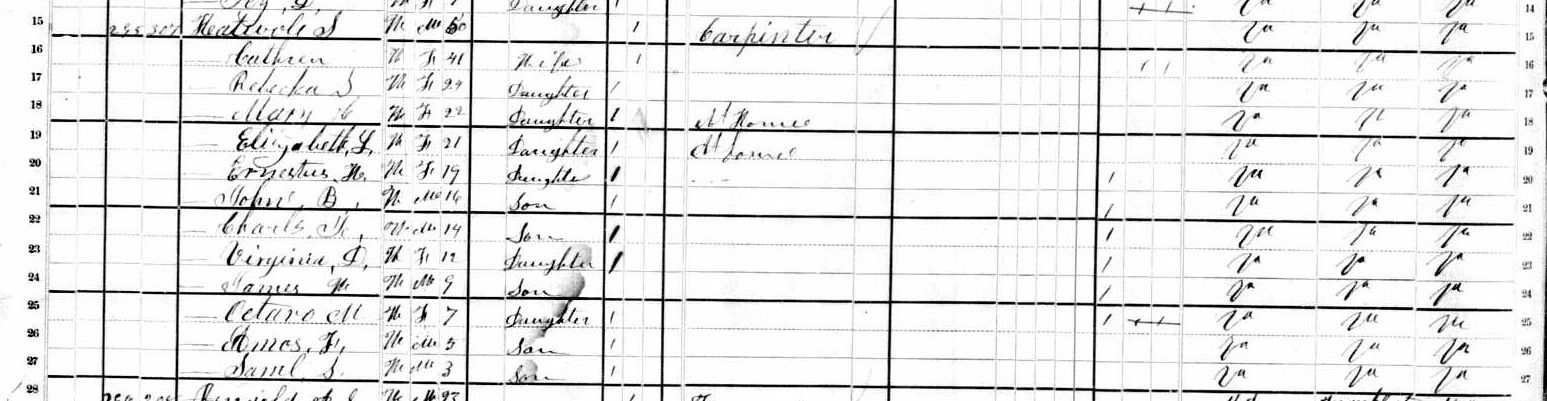 Daughter 1 14
15 Heatwole S W M 50 1 Carpinter Va Va Va 15
16 Cathren W F 41 Wife 1 Va Va Va 16
17 Rebecka W F 24 Daughter 1 Va Va Va
18 Mary W F 22 Daughter 1 At Home Va Va Va 18
19 Elizabeth, L, W F 21 Daughter 1 At home Va Va Va 19
20 W F 19 Daughter 1 1 Va Va Va 20
21 John, B, W M 16 Son 1 1 Va Va Va 21
22 Charls, W M 14 Son 1 1 Va Va Va 22
23 Virginia, D, W F 12 Daughter 1 1 Va Va Va 23
24 James W M 9 Son 1 1 Va Va Va 24
25 Octavo M W F 7 Daughter 1 1 Va Va Va 25
26 Amos, F, W M 5 Son 1 Va Va Va 26
27 Saml, S. W M 3 Son 1 Va Va Va 27
28